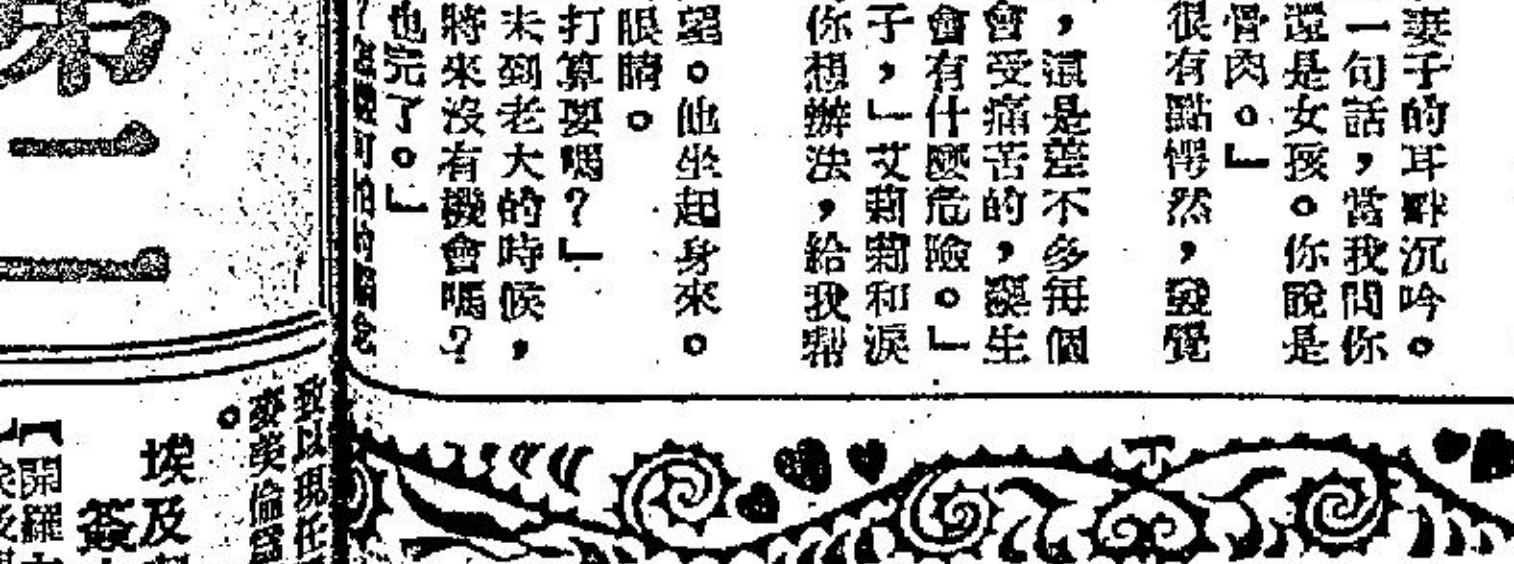 妻子的耳畔沉吟。
一句話，當我問你
還是女孩。你說是
骨肉。」
很有點愕然，發覺
，還是差不多每個
會受痛苦的，養生
會有什麼危險。」
子，」艾莉莉和淚
你想辦法，給我幫
望。他坐起身來。
眼睛。
打算要嗎？」
未到老大的時候，
將來沒有機會嗎？
也完了。」
可怕的
第二
致以現任
麥美倫
。
埃及
簽
【開羅